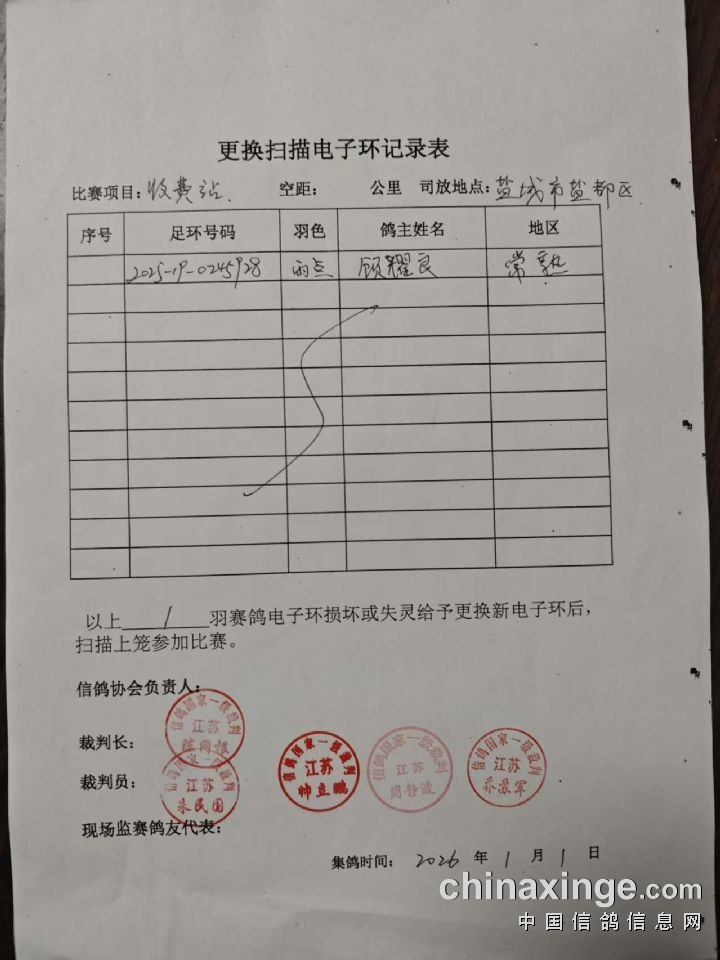 更换扫描电子环记录表
比赛项目: 收费站 空距: 公里 司放地点: 盐城市盐都区
序号 足环号码 羽色 鸽主姓名 地区
2025-19-0245928 雨点 顾耀良 常熟
以上 1 羽赛鸽电子环损坏或失灵给予更换新电子环后，
扫描上笼参加比赛。
信鸽协会负责人:
裁判长:
信鸽国家一级裁判 江苏
裁判员:
信鸽国家一级裁判 江苏 朱民国
信鸽国家一级裁判 江苏 帅立鹏
信鸽国家一级裁判 江苏 周静波
信鸽国家一级裁判 江苏 乔苏军
现场监赛鸽友代表:
集鸽时间: 2026 年 1 月 1 日
chinaxinge.com
中国信鸽信息网